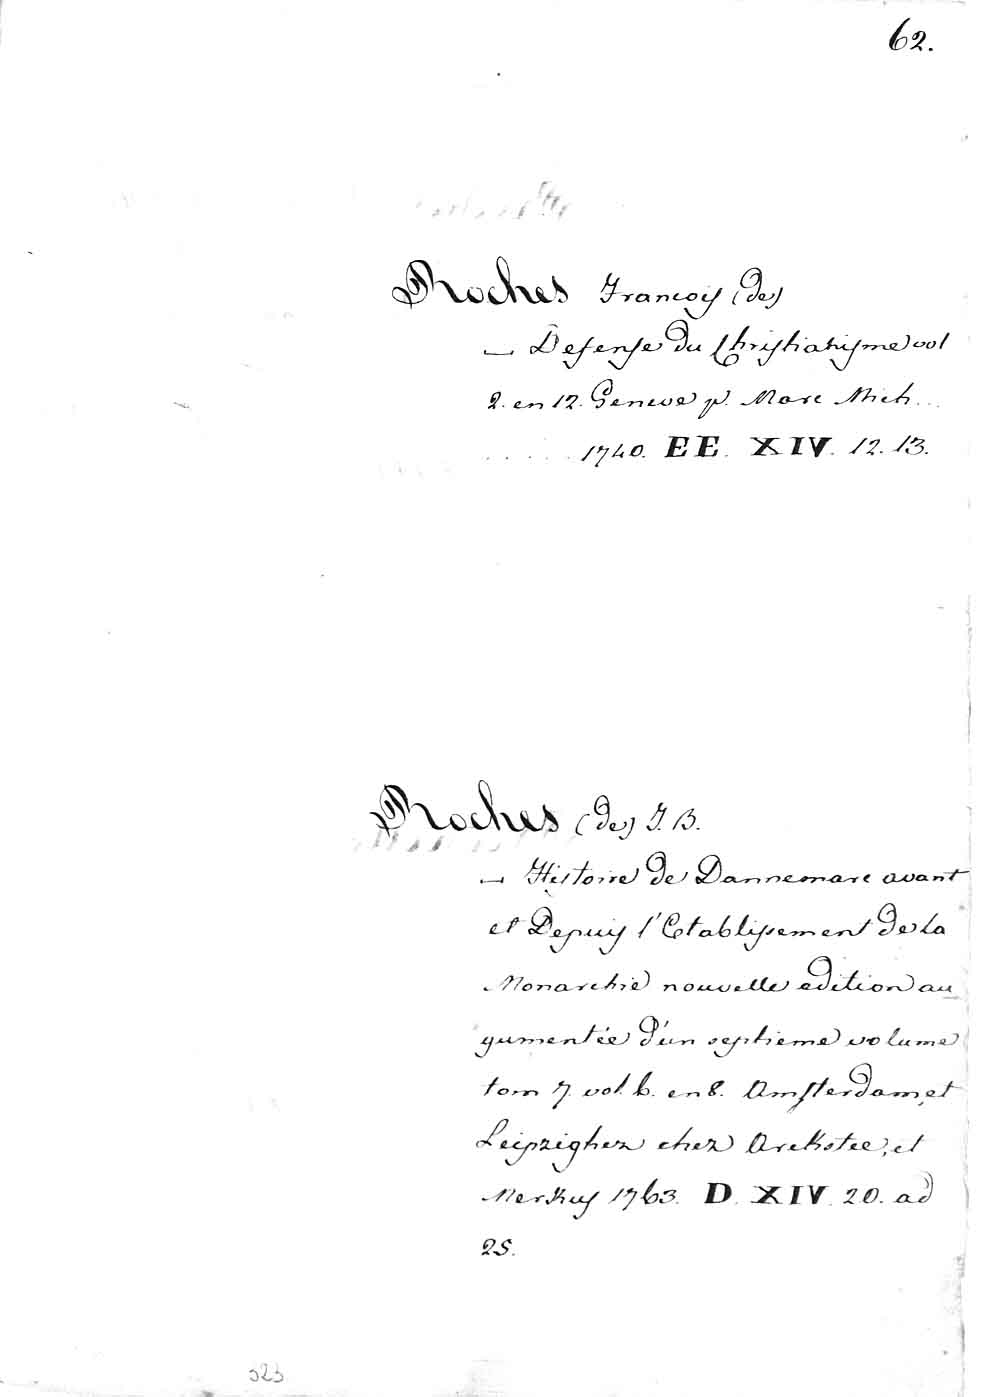 62.
Roches Francois (de)
— Defense du Christianisme vol
2. en 12. Geneve p. Marc Mich...
..... 1740. EE. XIV. 12. 13.
Roches (de) J. B.
— Histoire de Dannemarc avant
et Depuis l'Etablissement de la
Monarchie nouvelle edition au
gumentée d'un septieme volume
tom 7. vol. 6. en 8. Amsterdam, et
Leipzighez chez Arckstee, et
Merkus 1763. D. XIV. 20. ad
25.
323